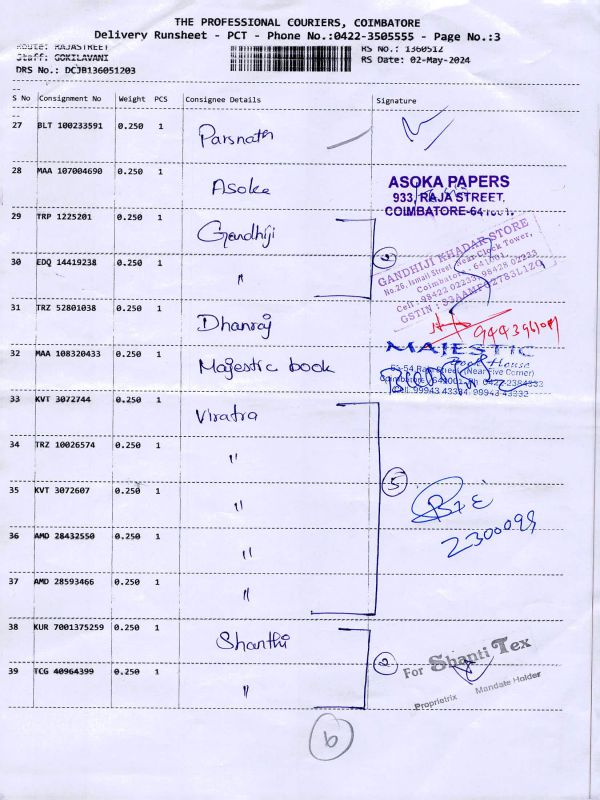 THE PROFESSIONAL COURIERS, COIMBATORE
Delivery Runsheet - PCT - Phone No.:0422-3505555 - Page No.:3
Route: RAJASTREET RS No.: 1360512
Staff: GOKILAVANI RS Date: 02-May-2024
DRS No.: DCJB136051203
S No Consignment No Weight PCS Consignee Details Signature
27 BLT 100233591 0.250 1 Parsnath
28 MAA 107004690 0.250 1 Asoka
ASOKA PAPERS
933, RAJA STREET,
COIMBATORE-641001.
29 TRP 1225201 0.250 1 Gandhiji
30 EDQ 14419238 0.250 1 "
2
GANDHIJI KHADAR STORE
No.26, Ismail Street, Near Clock Tower,
Coimbatore - 641001
Cell: 98422 02233, 98428 02233
31 TRZ 52801038 0.250 1 Dhanraj
32 MAA 108320433 0.250 1 Majestic book
MAJESTIC
Book House
(Near Five Corner)
33 KVT 3072744 0.250 1 Viratra
34 TRZ 10026574 0.250 1 "
35 KVT 3072607 0.250 1 "
36 AMD 28432550 0.250 1 "
37 AMD 28593466 0.250 1 "
5
2300099
38 KUR 7001375259 0.250 1 Shanthi
39 TCG 40964399 0.250 1 "
2
For Shanti Tex
Proprietrix Mandate Holder
6